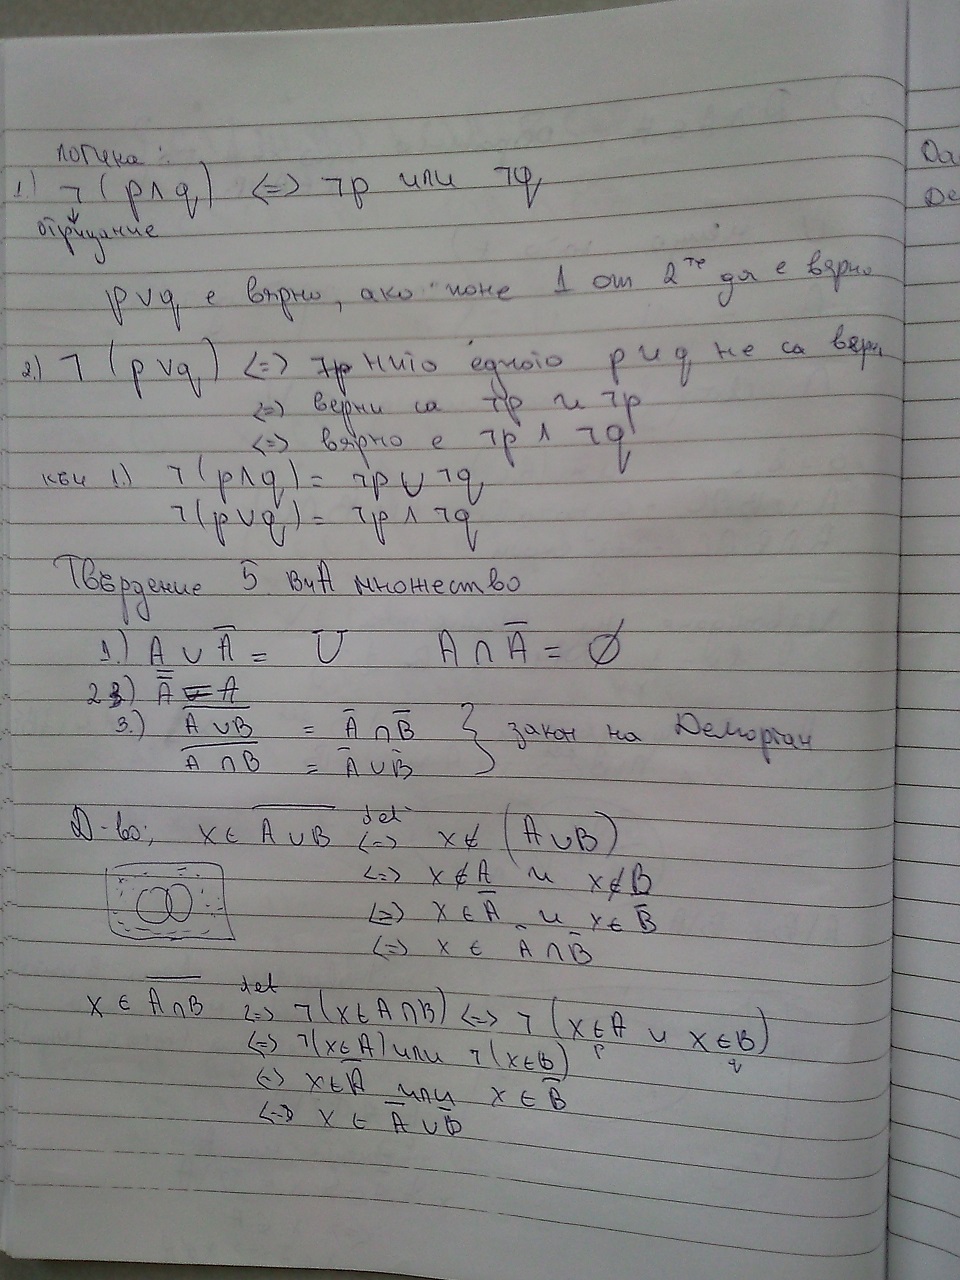 логика:
1.) ¬(p∧q) <=> ¬p или ¬q
отрицание
p∨q е вярно, ако поне 1 от 2те да е вярно
2.) ¬(p∨q) <=> нито едното p и q не са верни
<=> верни са ¬p и ¬p
<=> вярно е ¬p ∧ ¬q
към 1.) ¬(p∧q) = ¬p ∪ ¬q
¬(p∨q) = ¬p ∧ ¬q
Твърдение 5 A множество
1.) A ∪ A̅ = U A ∩ A̅ = ∅
2) A̿ = A
3.) \overline{A∪B} = A̅ ∩ B̅ } закон на Деморган
\overline{A∩B} = A̅ ∪ B̅
Д-во; x ∈ \overline{A∪B} <=>def x ∉ (A∪B)
<=> x ∉ A и x ∉ B
<=> x ∈ A̅ и x ∈ B̅
<=> x ∈ A̅ ∩ B̅
x ∈ \overline{A∩B} <=>def ¬(x ∈ A∩B) <=> ¬(x ∈ A и x ∈ B)
p q
<=> ¬(x∈A) или ¬(x∈B)
<=> x ∈ A̅ или x ∈ B̅
<=> x ∈ A̅ ∪ B̅
Де